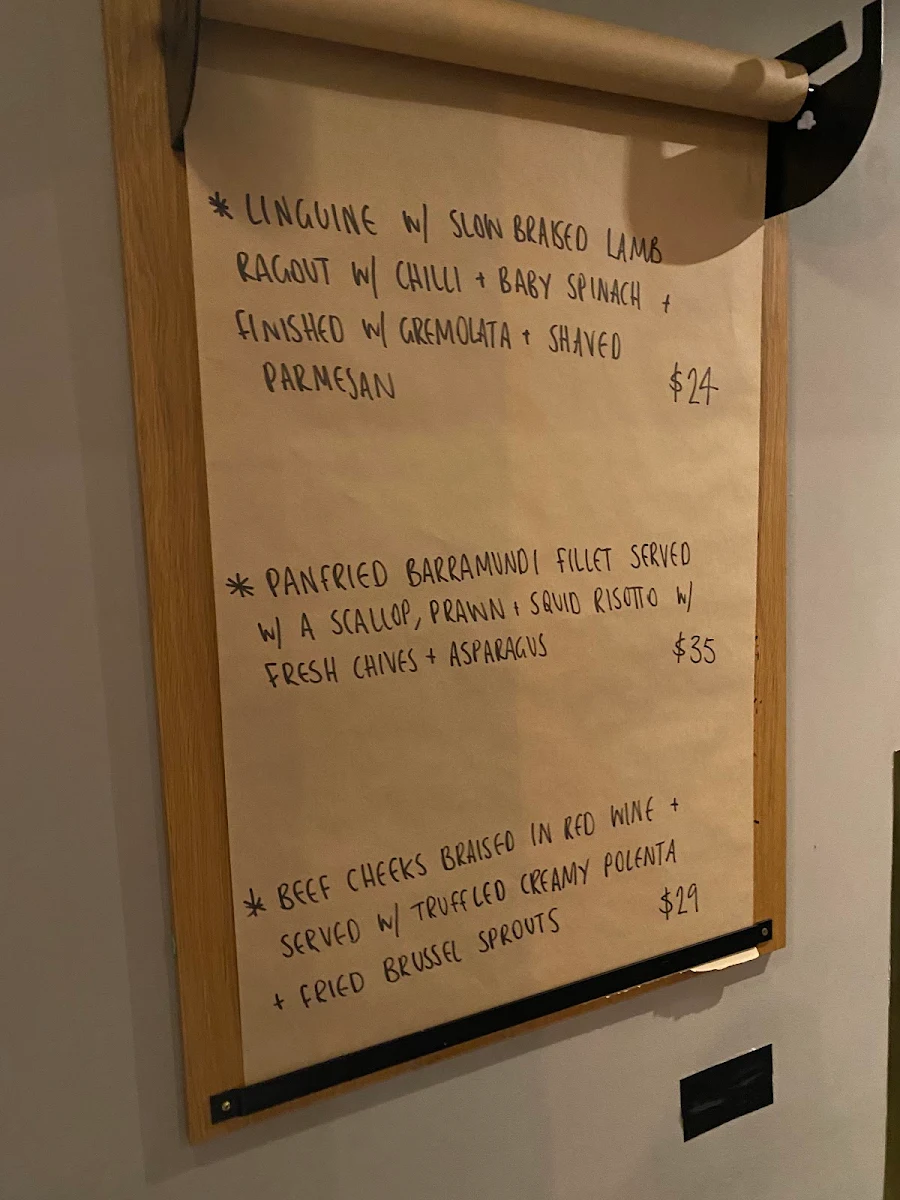 * LINGUINE W/ SLOW BRAISED LAMB
RAGOUT W/ CHILLI + BABY SPINACH +
FINISHED W/ GREMOLATA + SHAVED
PARMESAN $24
* PANFRIED BARRAMUNDI FILLET SERVED
W/ A SCALLOP, PRAWN + SQUID RISOTTO W/
FRESH CHIVES + ASPARAGUS $35
* BEEF CHEEKS BRAISED IN RED WINE +
SERVED W/ TRUFFLED CREAMY POLENTA
+ FRIED BRUSSEL SPROUTS $29